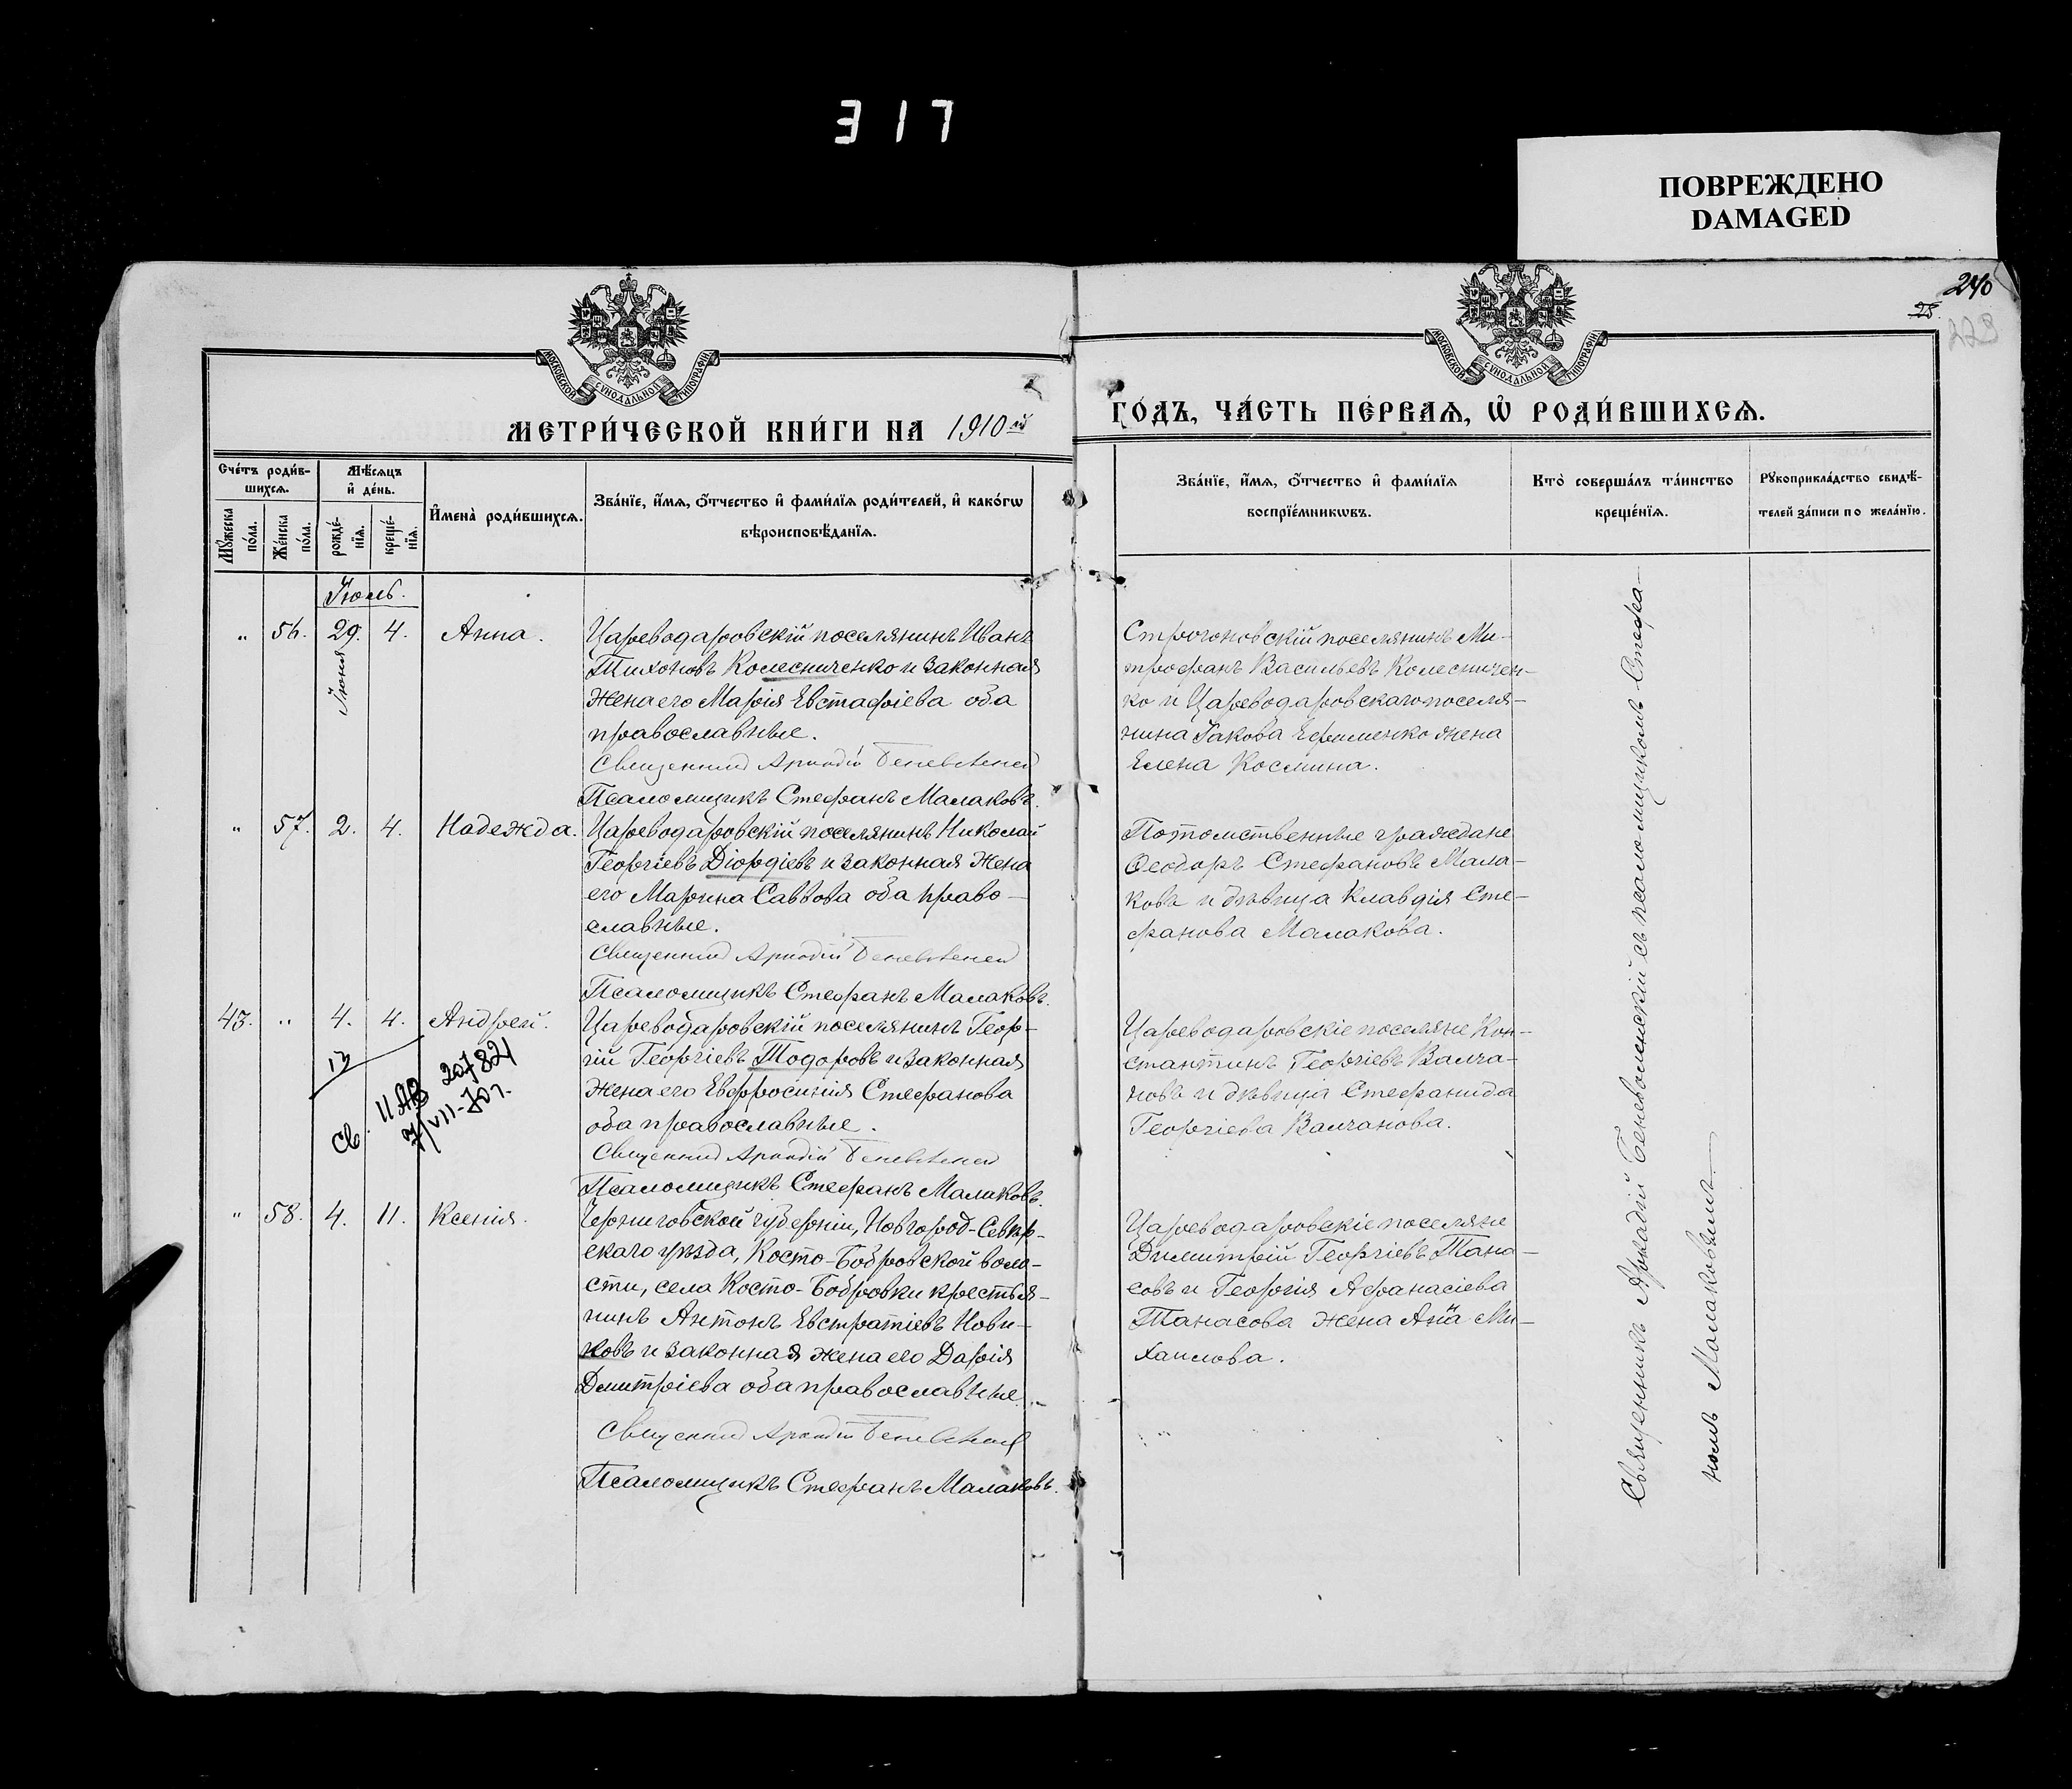 317
ПОВРЕЖДЕНО
DAMAGED
240
25.
229
МОСКОВСКОЙ СѴНОДАЛЬНОЙ ТИПОГРАФІИ
МОСКОВСКОЙ СѴНОДАЛЬНОЙ ТИПОГРАФІИ
МЕТРИ́ЧЕСКОЙ КНИ́ГИ НА 1910й
ГО́ДЪ, ЧА́СТЬ ПЕ́РВАѦ, Ѡ҆ РОДИ́ВШИХСѦ.
Сче́тъ роди́в-
шихсѧ.
Мꙋ́жеска по́ла.
Же́нска по́ла.
Мѣ́сѧцъ
и҆ де́нь.
рожде́-
нїѧ.
креще́-
нїѧ.
И҆мена̀ роди́вшихсѧ.
Зва́нїе, и҆́мѧ, ѻ҆́тчество и҆ фами́лїѧ роди́телей, и҆ како́гѡ
вѣроисповѣ́данїѧ.
Зва́нїе, и҆́мѧ, ѻ҆́тчество и҆ фами́лїѧ
воспрїе́мникѡвъ.
Кто̀ соверша́лъ та́инство
креще́нїѧ.
Рꙋкоприкла́дство свидѣ́-
телей за́писи по жела́нїю.
Іюль.
" 56. 29. Іюня 4. Анна.
Цареводаровскій поселянинъ Иванъ
Тихоновъ Колесниченко и законная
жена его Марія Евстафіева оба
православные.
Священникъ Аркадій Беневоленскій
Псаломщикъ Стефанъ Малаковъ.
Строгоновскій поселянинъ Ми-
трофанъ Васильевъ Колесничен-
ко и Цареводаровскаго поселя-
нина Іакова Ефименко жена
Елена Космина.
" 57. 2. 4. Надежда.
Цареводаровскій поселянинъ Николай
Георгіевъ Діордіевъ и законная жена
его Марина Саввова оба право-
славные.
Священникъ Аркадій Беневоленскій
Псаломщикъ Стефанъ Малаковъ.
Потомственные граждане
Ѳеодоръ Стефановъ Мала-
ковъ и дѣвица Клавдія Сте-
фанова Малакова.
43. " 4. 4. Андрей.
17
Св. II АЗ 207821
7/VII-70г.
Цареводаровскій поселянинъ Геор-
гій Георгіевъ Тодоровъ и законная
жена его Евфросинія Стефанова
оба православные.
Священникъ Аркадій Беневоленскій
Псаломщикъ Стефанъ Малаковъ.
Цареводаровскіе поселяне Кон-
стантинъ Георгіевъ Валча-
новъ и дѣвица Стефанида
Георгіева Валчанова.
" 58. 4. 11. Ксенія.
Черниговской губерніи, Новгород-Сѣвер-
скаго уѣзда, Косто-Бобровской воло-
сти, села Косто-Бобровки крестья-
нинъ Антонъ Евстратіевъ Нови-
ковъ и законная жена его Дарія
Дмитріева оба православные.
Священникъ Аркадій Беневоленскій
Псаломщикъ Стефанъ Малаковъ.
Цареводаровскіе поселяне
Димитрій Георгіевъ Тана-
совъ и Георгія Афанасіева
Танасова жена Анна Ми-
хаилова.
Священникъ Аркадій Беневоленскій съ псаломщикомъ Стефа-
номъ Малаковымъ.